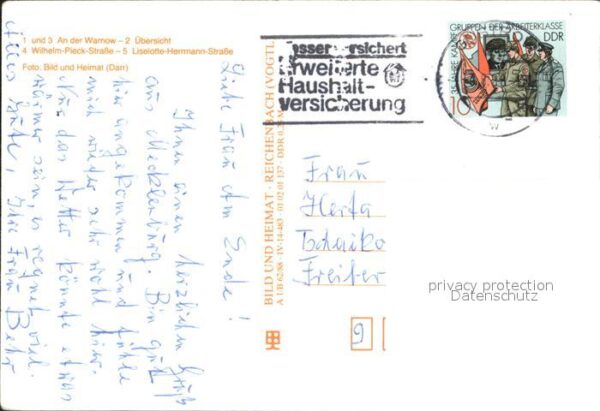 1 und 3 An der Warnow – 2 Übersicht
4 Wilhelm-Pieck-Straße – 5 Liselotte-Herrmann-Straße
Foto: Bild und Heimat (Darr)
Liebe Frau am Ende!
Ihnen einen herzlichen Gruß
aus Mecklenburg. Bin gut
hier angekommen und fühle
mich wieder sehr wohl hier.
Nur das Wetter könnte etwas
wärmer sein, es regnet viel.
Alles Gute, Ihre Frau
BILD UND HEIMAT · REICHENBACH (VOGTL
A 1/B 62/88 · IV-14-483 · 01 02 01 137 · DDR
esser versichert
Erweiterte
Haushalt-
versicherung
KAMPFGRUPPEN DER ARBEITERKLASSE
DDR
10
Frau
Herta
Freiter
privacy protection
Datenschutz
9